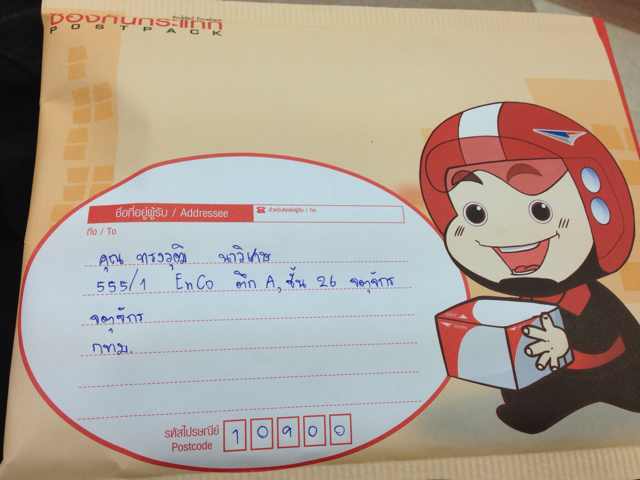 ซองกันกระแทก
POSTPACK
ชื่อที่อยู่ผู้รับ / Addressee
ถึง / To
คุณ ทรงวุฒิ นาวิเศษ
555/1 EnCo ตึก A, ชั้น 26 จตุจักร
จตุจักร
กทม.
รหัสไปรษณีย์ 10900
Postcode